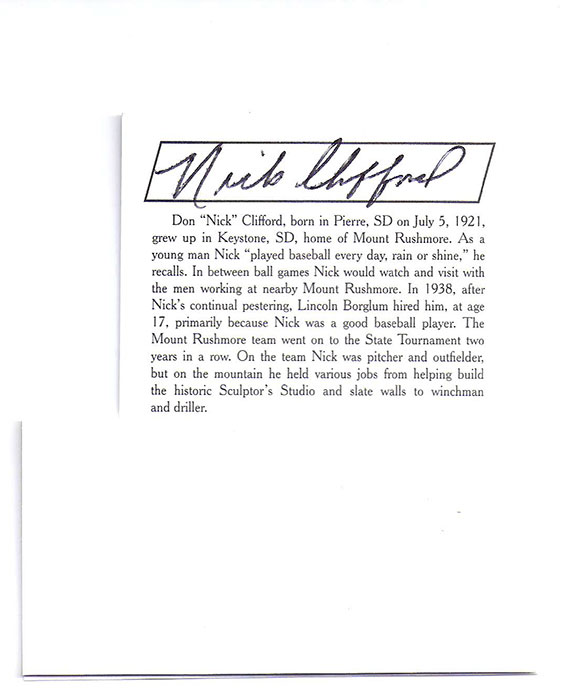 Nick Clifford
Don “Nick” Clifford, born in Pierre, SD on July 5, 1921,
grew up in Keystone, SD, home of Mount Rushmore. As a
young man Nick “played baseball every day, rain or shine,” he
recalls. In between ball games Nick would watch and visit with
the men working at nearby Mount Rushmore. In 1938, after
Nick’s continual pestering, Lincoln Borglum hired him, at age
17, primarily because Nick was a good baseball player. The
Mount Rushmore team went on to the State Tournament two
years in a row. On the team Nick was pitcher and outfielder,
but on the mountain he held various jobs from helping build
the historic Sculptor’s Studio and slate walls to winchman
and driller.